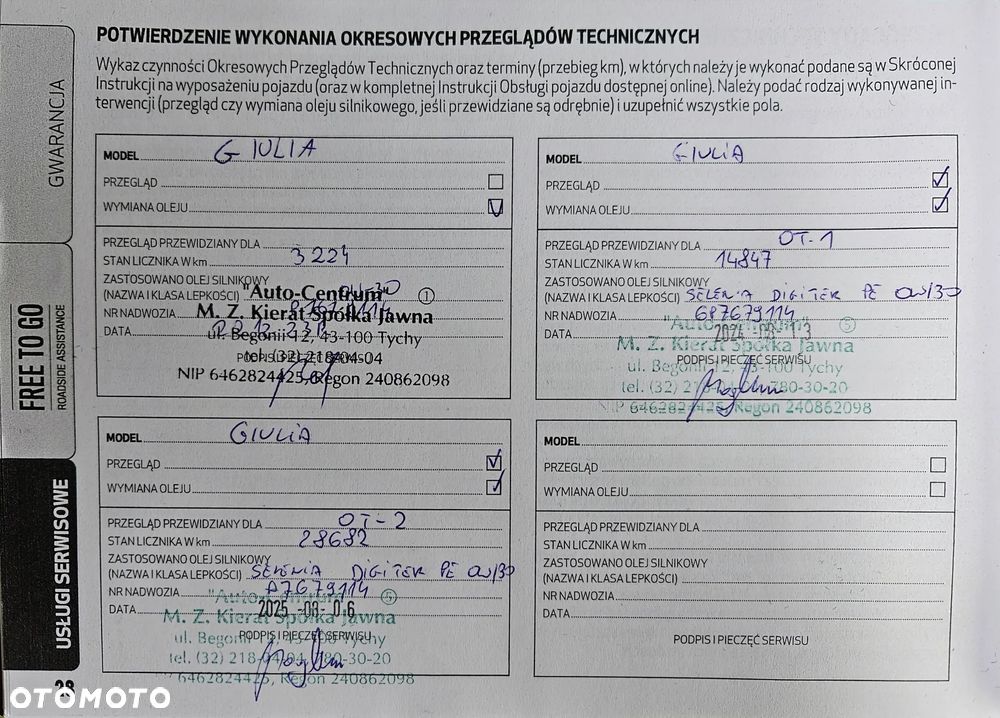 POTWIERDZENIE WYKONANIA OKRESOWYCH PRZEGLĄDÓW TECHNICZNYCH
Wykaz czynności Okresowych Przeglądów Technicznych oraz terminy (przebieg km), w których należy je wykonać podane są w Skróconej
Instrukcji na wyposażeniu pojazdu (oraz w kompletnej Instrukcji Obsługi pojazdu dostępnej online). Należy podać rodzaj wykonywanej in-
terwencji (przegląd czy wymiana oleju silnikowego, jeśli przewidziane są odrębnie) i uzupełnić wszystkie pola.
GWARANCJA
FREE TO GO
ROADSIDE ASSISTANCE
USŁUGI SERWISOWE
MODEL GIULIA
PRZEGLĄD
WYMIANA OLEJU
PRZEGLĄD PRZEWIDZIANY DLA
STAN LICZNIKA W km 3224
ZASTOSOWANO OLEJ SILNIKOWY
(NAZWA I KLASA LEPKOŚCI)
"Auto-Centrum" 1
NR NADWOZIA
M. Z. Kierat Spółka Jawna
DATA
ul. Begonii 12, 43-100 Tychy
PODPIS I PIECZĘĆ SERWISU
tel. (32) 218-04-04
NIP 6462824425, Regon 240862098
MODEL GIULIA
PRZEGLĄD
WYMIANA OLEJU
PRZEGLĄD PRZEWIDZIANY DLA OT-1
STAN LICZNIKA W km 14847
ZASTOSOWANO OLEJ SILNIKOWY
(NAZWA I KLASA LEPKOŚCI) SELENIA DIGITEK PE 0W/30
NR NADWOZIA
"Auto-Centrum" 5
DATA
M. Z. Kierat Spółka Jawna
PODPIS I PIECZĘĆ SERWISU
ul. Begonii 12, 43-100 Tychy
tel. (32) 780-30-20
NIP 6462824425, Regon 240862098
MODEL GIULIA
PRZEGLĄD
WYMIANA OLEJU
PRZEGLĄD PRZEWIDZIANY DLA OT-2
STAN LICZNIKA W km 28682
ZASTOSOWANO OLEJ SILNIKOWY
(NAZWA I KLASA LEPKOŚCI) SELENIA DIGITEK PE 0W/30
NR NADWOZIA 5
DATA 2025 -08- 06
M. Z. Kierat Spółka Jawna
PODPIS I PIECZĘĆ SERWISU
ul. Begonii Tychy
tel. (32) 218-04-04, 780-30-20
6462824425, Regon 240862098
MODEL
PRZEGLĄD
WYMIANA OLEJU
PRZEGLĄD PRZEWIDZIANY DLA
STAN LICZNIKA W km
ZASTOSOWANO OLEJ SILNIKOWY
(NAZWA I KLASA LEPKOŚCI)
NR NADWOZIA
DATA
PODPIS I PIECZĘĆ SERWISU
28
OTOMOTO